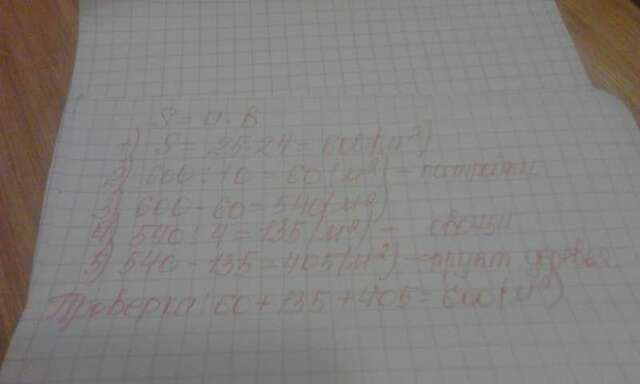 S = a · b
1) S = 25 · 24 = 600 (м²)
2) 600 : 10 = 60 (м²) - постройки
3) 600 - 60 = 540 (м²)
4) 540 : 4 = 135 (м²) - овощи
5) 540 - 135 = 405 (м²) - фрукт деревья
Проверка: 60 + 135 + 405 = 600 (м²)